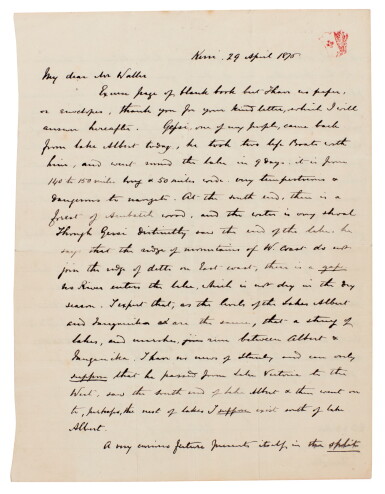 Kerri 29 April 1876
My dear Mr Waller
Excuse page of blank book but I have no paper,
or envelopes, thank you for your kind letter, which I will
answer hereafter. Gessi, one of my people, came back
from Lake Albert today, he took two life Boats with
him, and went round the lake in 9 days. it is from
140 to 150 miles long & 50 miles wide. very tempestuous &
dangerous to navigate. At the south end, there is a
forest of Ambatch wood, and the water is very shoal
Though Gessi distinctly saw the end of the lake. he
says that the ridge of mountains of W. Coast do not
join the ridge of ditto on East coast, there is a gap
no River enters the lake, which is not dry in the dry
season. I expect that, as the levels of the Lakes Albert
and Tanganika are the same, that a string of
lakes, and marshes, joins between Albert &
Tanganika. I have no news of Stanley and can only
suppose that he passed from Lake Victoria to the
West, saw the south end of lake Albert & then went on
to, perhaps, the nest of lakes I suppose exist south of lake
Albert.
A very curious feature presents itself, in the split